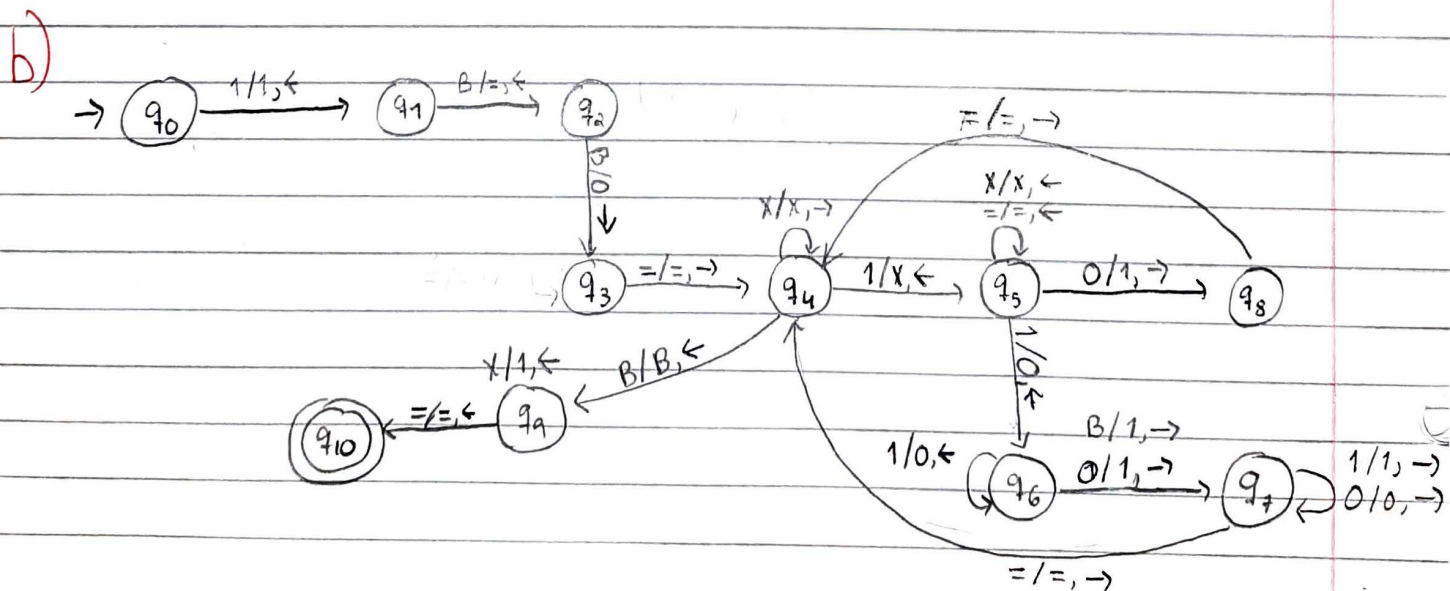 b)
→ q0 1/1,← q1 B/=,← q2
=/=,→
B/0 ↓
x/x,→
x/x,←
=/=,←
q3 =/=,→ q4 1/x,← q5 0/1,→ q8
1/0,←
B/B,←
x/1,←
q10 =/=,← q9
1/0,← q6
B/1,→
0/1,→
q7
1/1,→
0/0,→
=/=,→